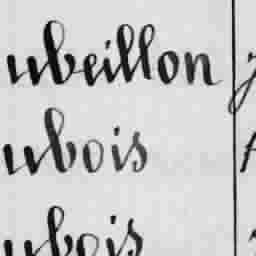 ubeillon
ubois
ubois